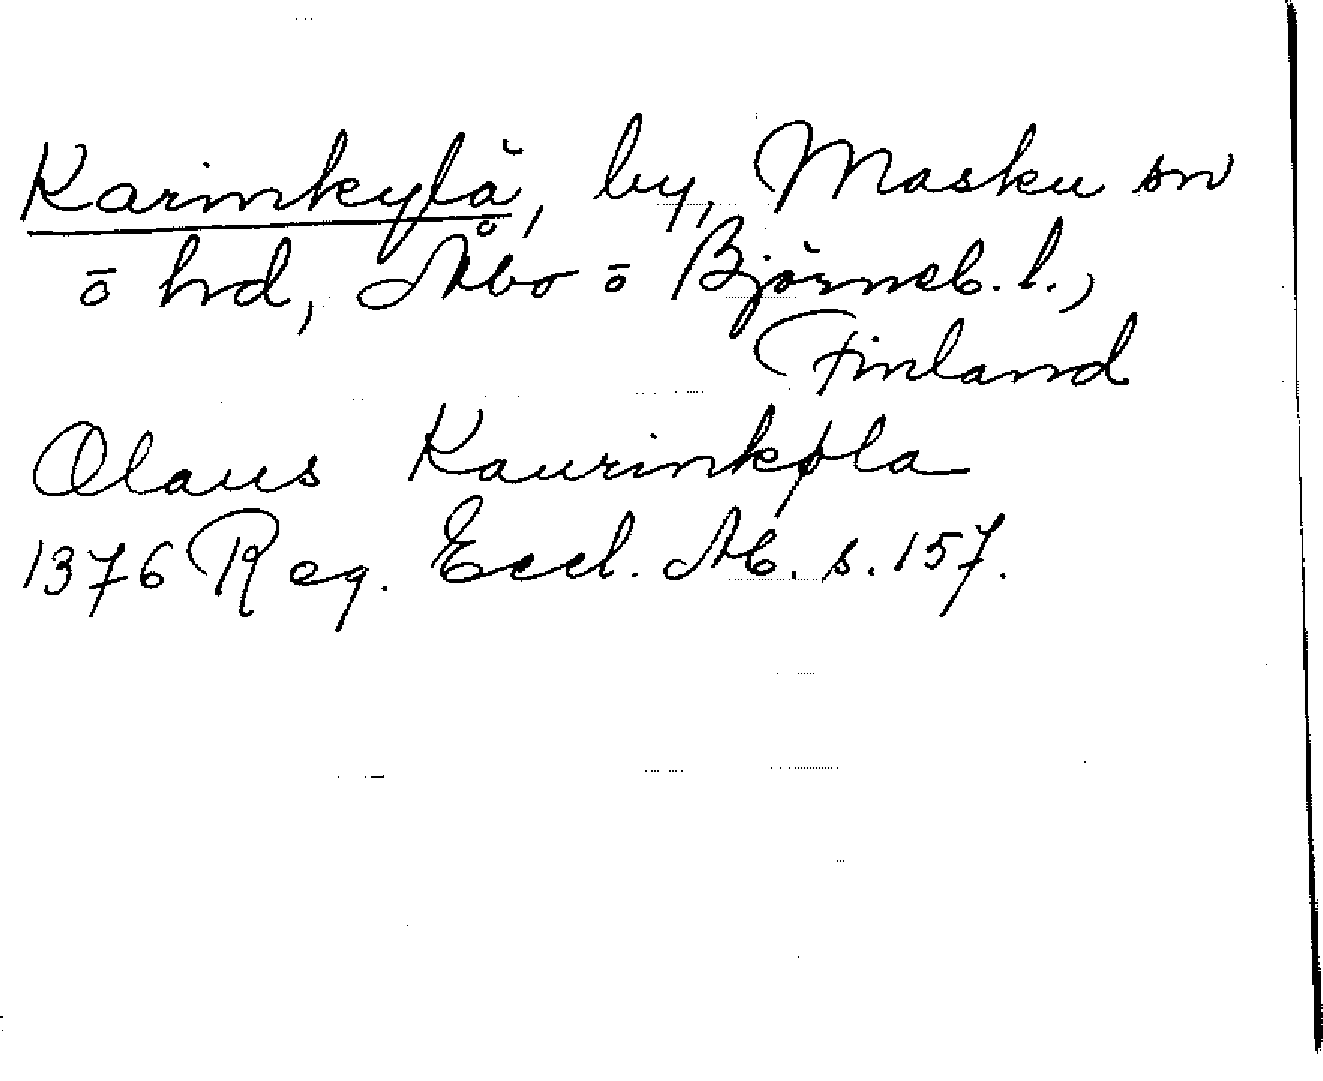 Karinkylä, by, Masku sn
ō hd, Åbo ō Björneb. l.,
Finland
Olaus Kaurinkøla
1376 Reg. Eccl. Ab. s. 157.